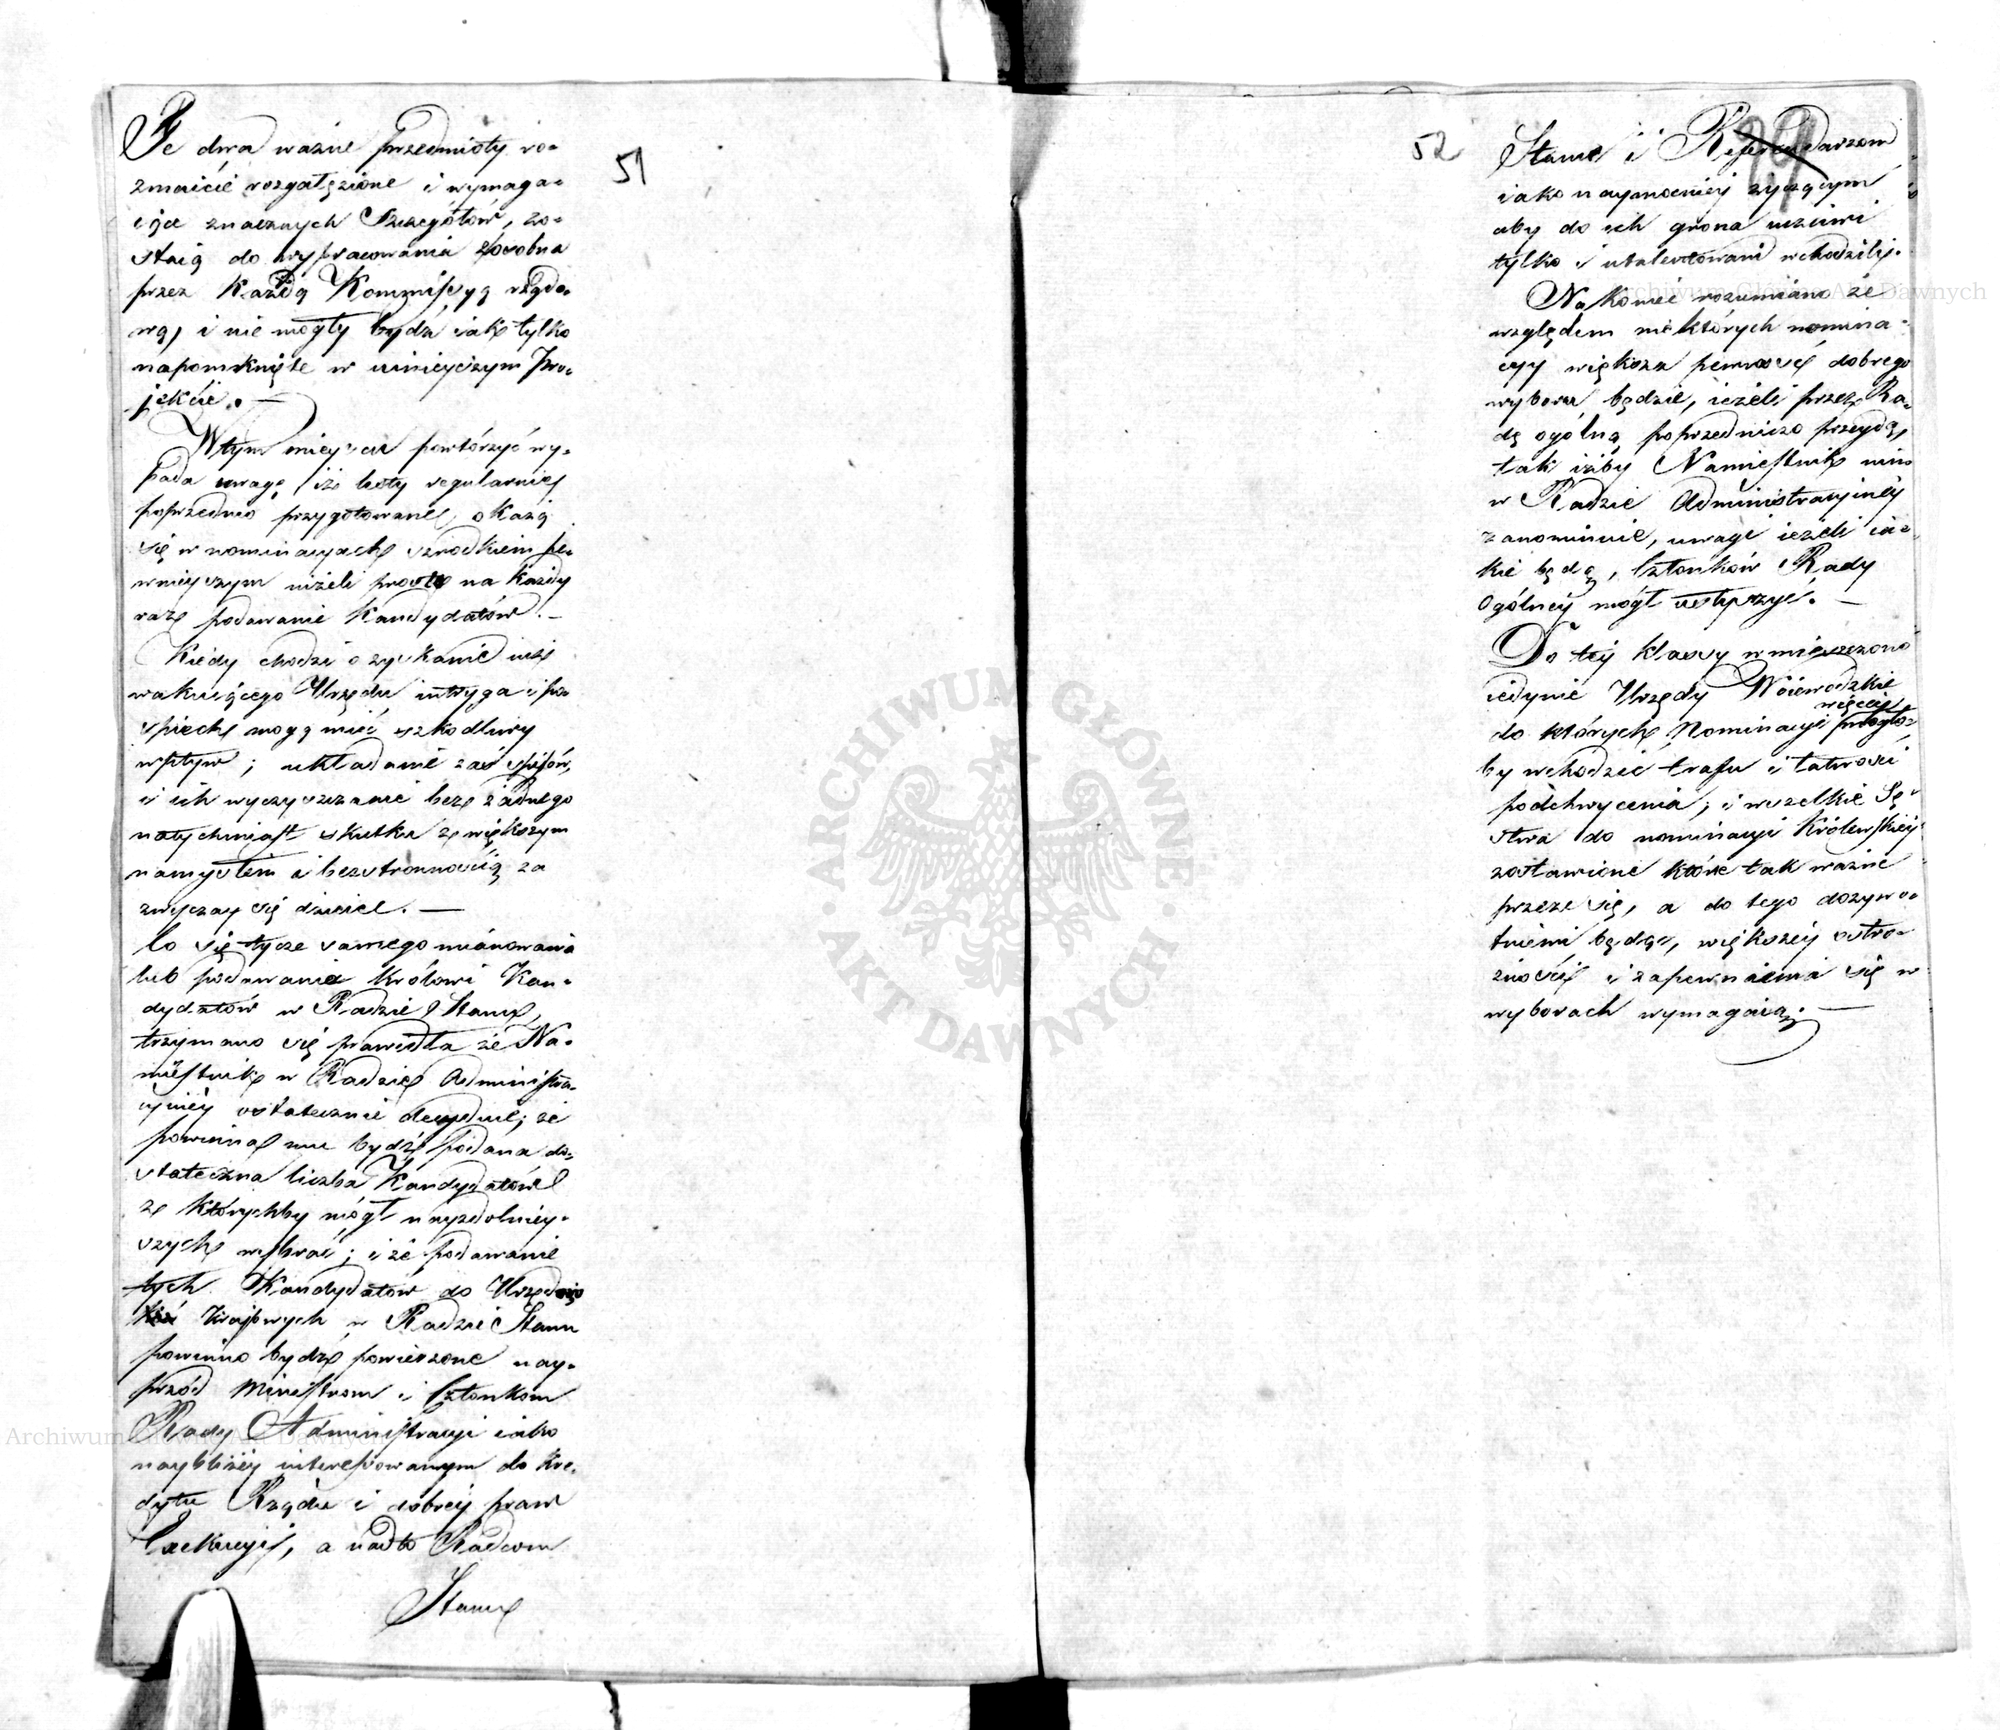 51
Te dwa ważne przedmioty ro-
zmaicie rozgałęzione i wymaga-
iące znacznych Szczegółów, zo-
staią do wypracowania zosobna
przez Każdą Kommissyą rządo-
wą, i nie mogły bydź iak tylko
napomknięte w ninieyszym Pro-
jekcie. —
W tym mieyscu powtórzyć wy-
pada uwagę, iże listy regularniey
poprzednio przygotowane, okażą
się w nominacyach szrodkiem pe-
wnieyszym niżeli proste na każdy
raz podawanie Kandydatów. —
Kiedy chodzi o zyskanie iuż
wakuiącego Urzędu intryga i po-
spiech mogą mieć szkodliwy
wpływ; układanie zaś spisów,
i ich wyczyszczanie bez żadnego
natychmiast skutku z większym
namysłem i bezstronnością za
zwyczay się dzieie. —
Co się tycze samego mianowania
lub podawania Królowi Kan-
dydatów w Radzie Stanu,
trzymano się prawidła że Na-
miestnik w Radzie Administra-
cyiney ostatecznie decyduie; że
powinna mu bydź podana do-
stateczna liczba Kandydatów
z którychby mógł nayzdolniey-
szych wybrać; i że podawanie
tych Kandydatów do Urzędów
Krajowych w Radzie Stanu
powinno bydź powierzone nay-
przód Ministrom i Członkom
Rady Administracyi iako
naybliżey interessowanym do kre-
dytu Rządu i dobrey praw
Exekucyi, a nadto Radcom
Stanu
52
Stanu i Referendarzom
iako naymocniey życzącym
aby do ich grona uczciwi
tylko i utalentowani wchodzili.
Nakoniec rozumiano że
względem niektórych nomina-
cyy większa pewność dobrego
wyboru będzie, ieżeli przez Ra-
dę ogólną poprzedniczo przeydą,
tak iżby Namiestnik nim
w Radzie Administracyiney
zanominuie, uwagi ieżeli ia-
kie będą, Członków Rady
Ogólney mógł usłyszyć. —
Do tey klassy wmieszczono
iedynie Urzędy Woiewodzkie
więcey
do których Nominacyi mogło-
by wchodzić trafu i łatwości
podchwycenia; i wszelkie Sę-
stwa do nominacyi Królewskiey
zostawione które tak ważne
przez się, a do tego dożywo-
tniemi będąc, większey ostro-
żności i zapewnienia się w
wyborach wymagaią. —
ARCHIWUM GŁÓWNE
AKT DAWNYCH
Archiwum Główne Akt Dawnych
Archiwum Główne Akt Dawnych